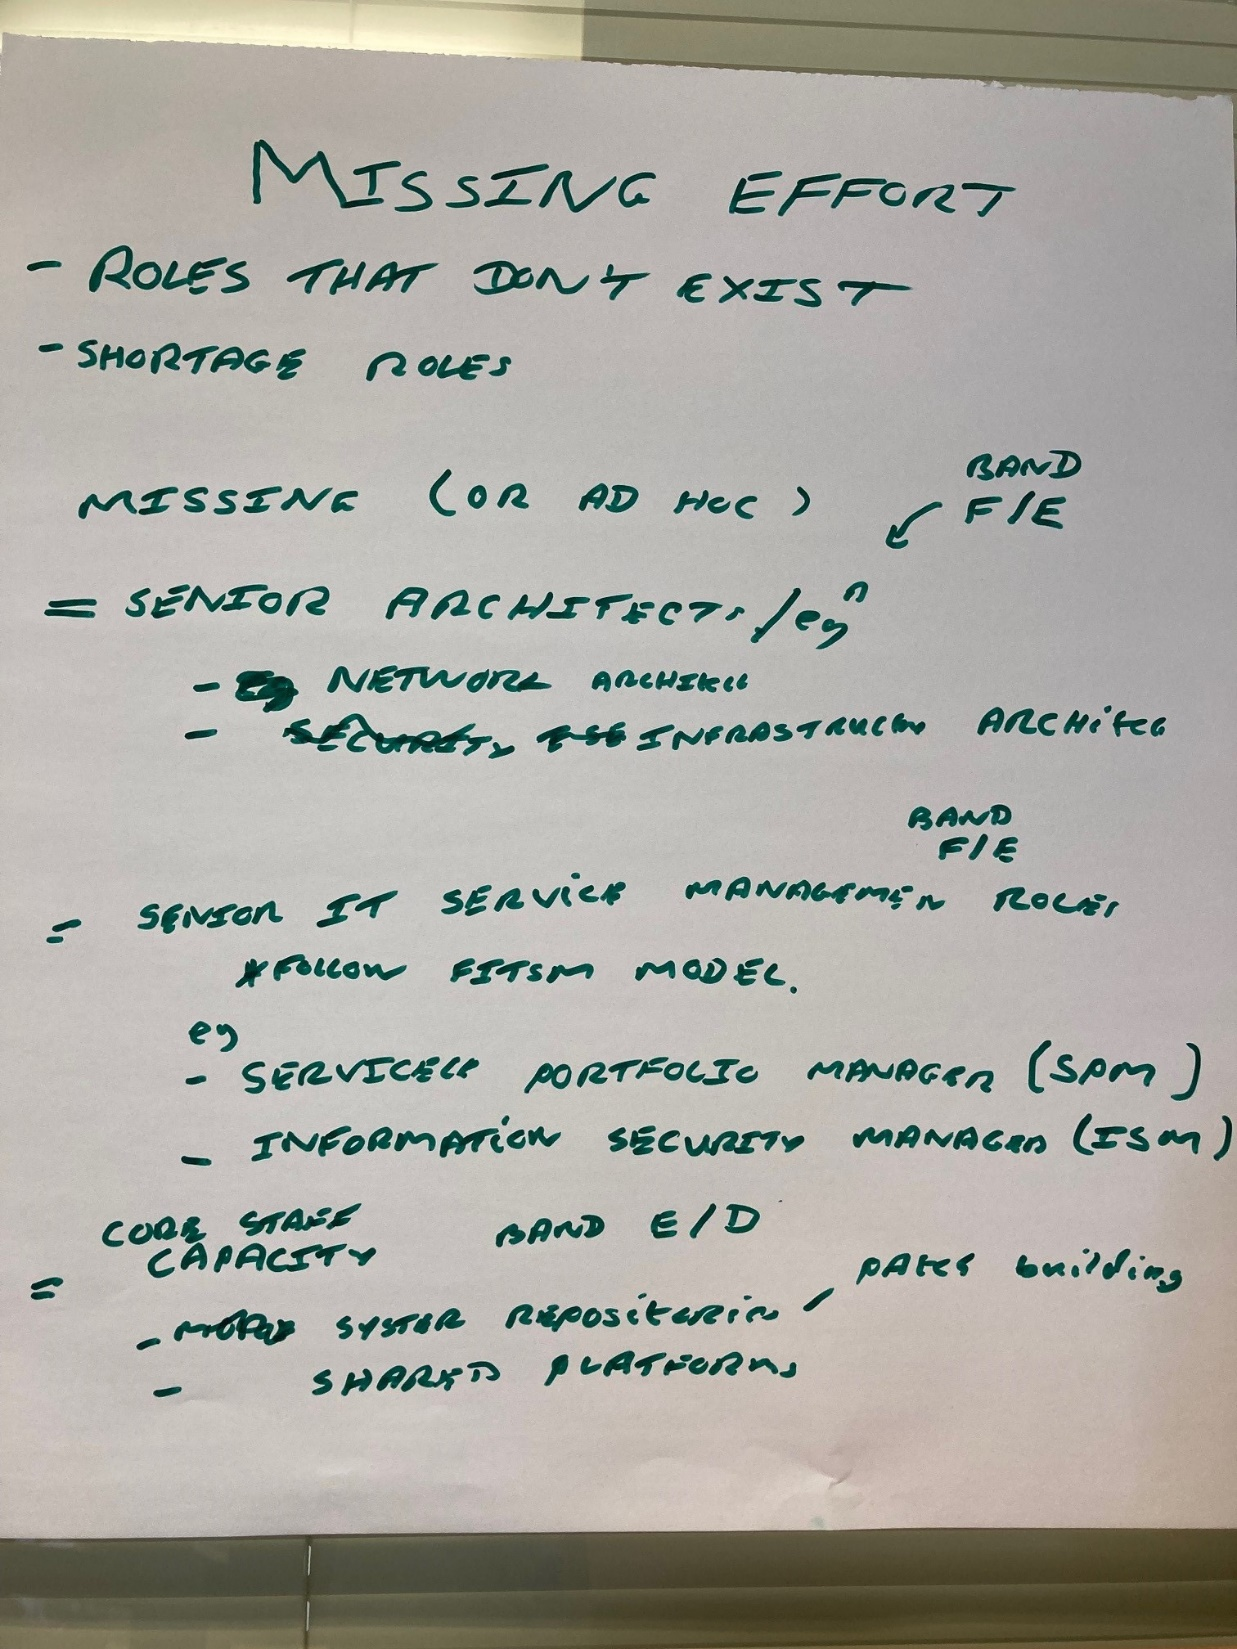 MISSING EFFORT
- ROLES THAT DON'T EXIST
- SHORTAGE ROLES
MISSING (OR AD HOC)
BAND
F/E
= SENIOR ARCHITECTS /
- NETWORK
- INFRASTRUCTURE ARCHITECT
BAND
F/E
= SENIOR IT SERVICE MANAGEMEN ROLES
* FOLLOW FITSM MODEL.
eg
- PORTFOLIO MANAGER (SPM)
- INFORMATION SECURITY MANAGER (ISM)
CORE STAFF
CAPACITY
BAND E/D
=
- SYSTEM /
building
- SHARED PLATFORMS